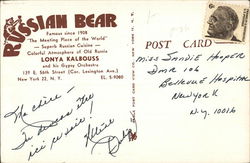 RUSSIAN BEAR
Famous since 1908
"The Meeting Place of the World"
— Superb Russian Cuisine —
Colorful Atmosphere of Old Russia
LONYA KALBOUSS
and his Gypsy Orchestra
139 E. 56th Street (Cor. Lexington Ave.)
New York 22, N. Y. EL. 5-9080
POST CARD
Miss Sandie Hooper
Bellevue Hospital
New York
N.Y. 10016
Ma chère